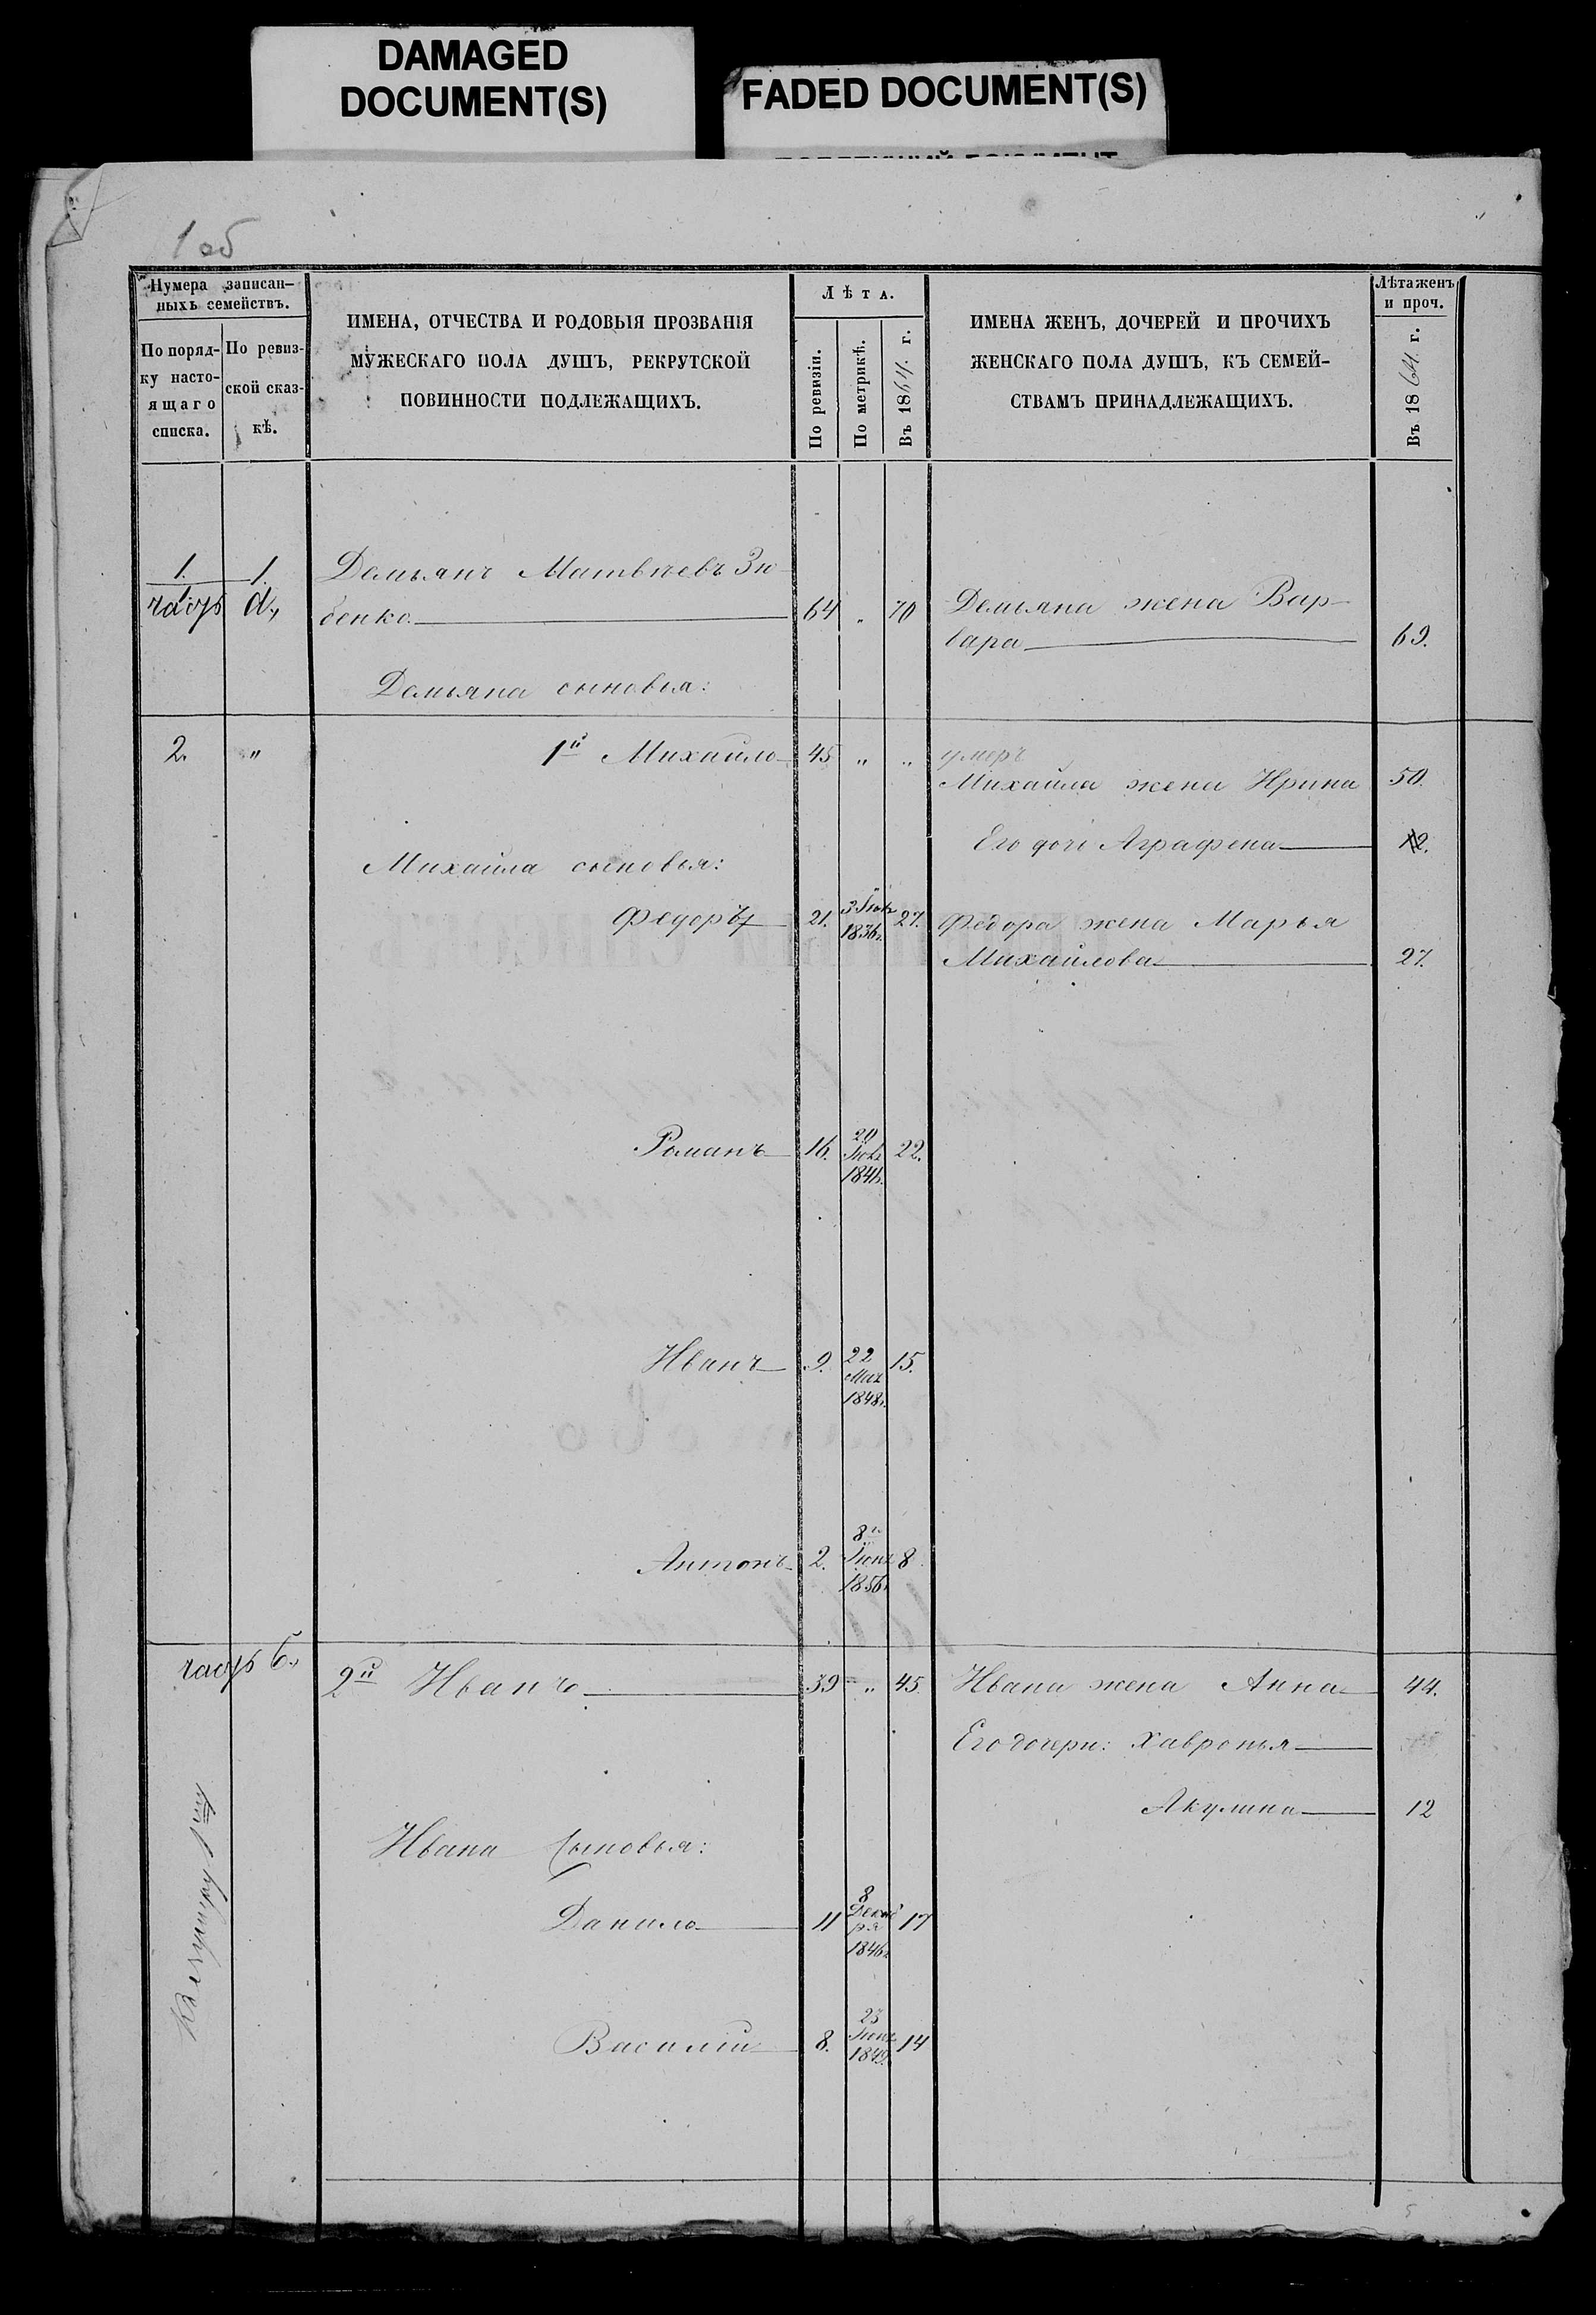 DAMAGED
DOCUMENT(S)
FADED DOCUMENT(S)
1 об
Нумера записан-
ныхъ семействъ.
По поряд-
ку насто-
ящаго
списка.
По ревиз-
ской сказ-
кѣ.
ИМЕНА, ОТЧЕСТВА И РОДОВЫЯ ПРОЗВАНІЯ
МУЖЕСКАГО ПОЛА ДУШЪ, РЕКРУТСКОЙ
ПОВИННОСТИ ПОДЛЕЖАЩИХЪ.
Лѣта.
По ревизіи.
По метрикѣ.
Въ 1864 г.
ИМЕНА ЖЕНЪ, ДОЧЕРЕЙ И ПРОЧИХЪ
ЖЕНСКАГО ПОЛА ДУШЪ, КЪ СЕМЕЙ-
СТВАМЪ ПРИНАДЛЕЖАЩИХЪ.
Лѣта женъ
и проч.
Въ 1864 г.
1. 1. Демьянъ Матвѣевъ Зи-
бенко 64 „ 70 Демьяна жена Вар-
вара 69.
Демьяна сыновья:
2. „ 1й Михайло 45 „ „ умеръ
Михайла жена Ирина 50.
Его дочь Аграфена 12.
Михайла сыновья:
Федоръ 21. 3 1836 27. Федора жена Марья
Михайлова 27.
Романъ 16. 20 1841 22.
Иванъ 9. 22 Мая 1848 15.
Антонъ 2. 8 Іюня 1856 8
2й Иванъ 39 „ 45 Ивана жена Анна 44.
Его дочери: Хавронья
Акулина 12
Ивана сыновья:
Данило 11 8 Декаб
ря
1846 17
Василій 8. 23 1849 14